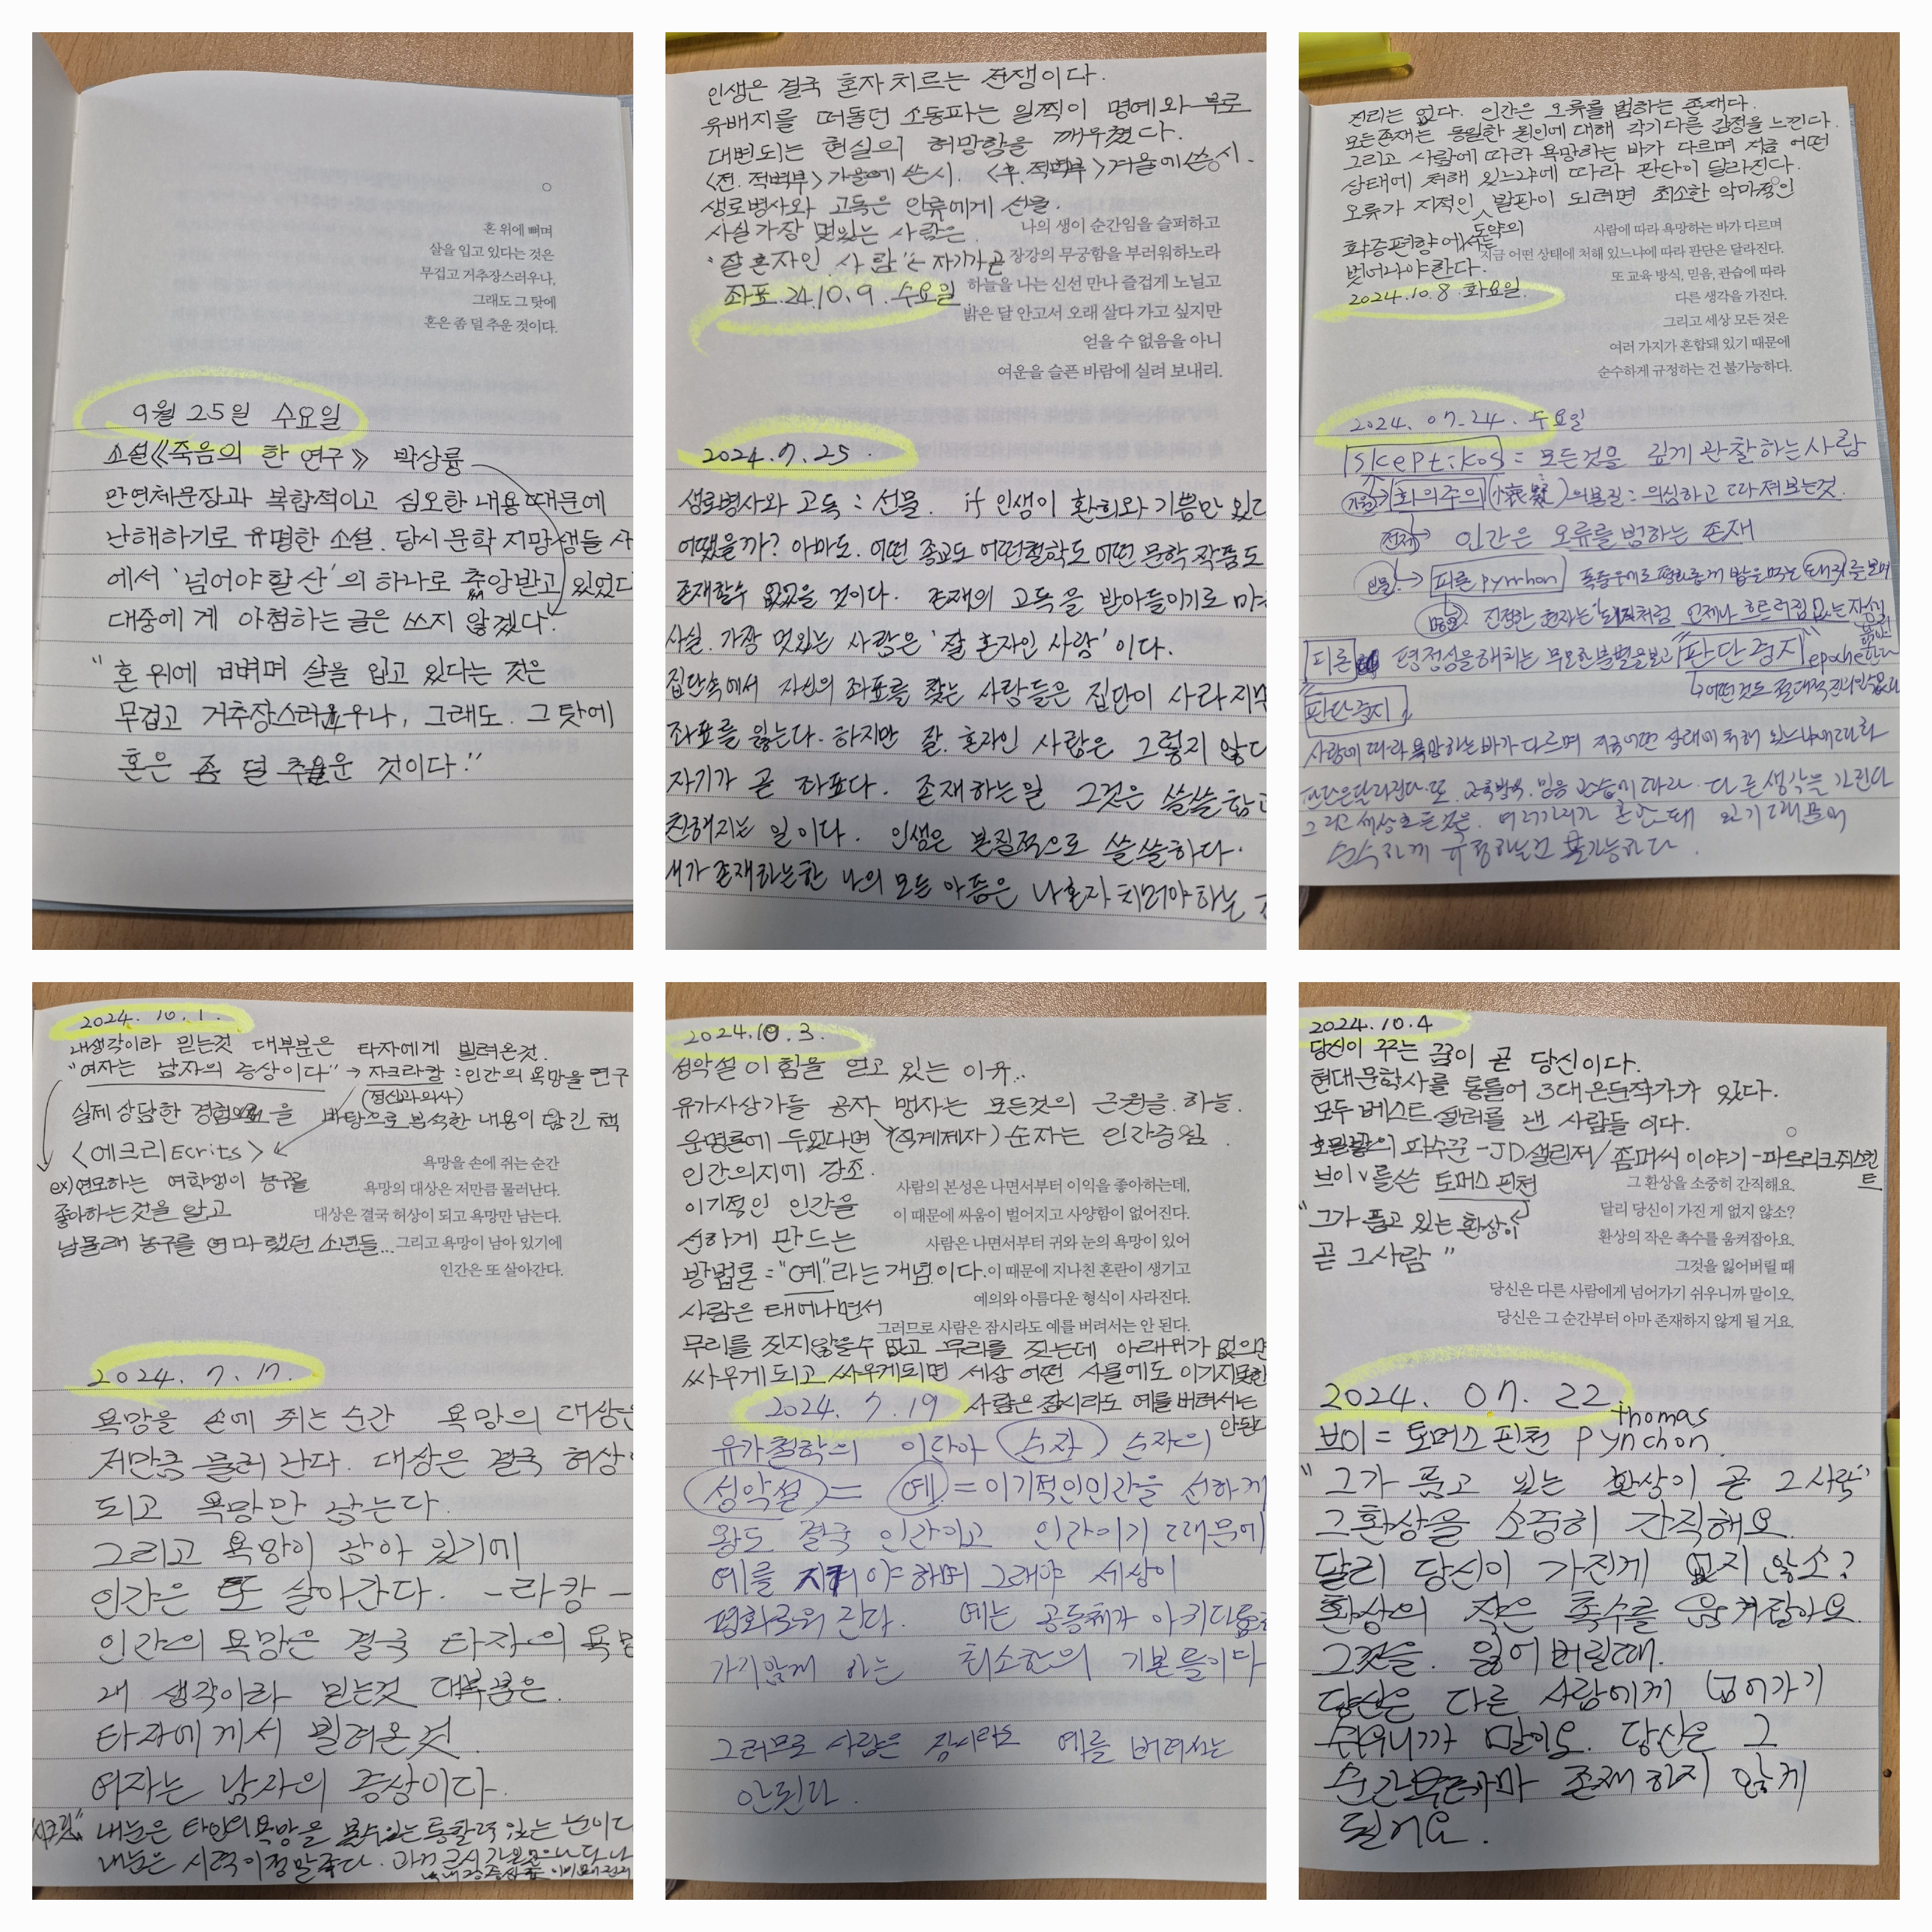 혼 위에 뼈며
살을 입고 있다는 것은
무겁고 거추장스러우나,
그래도 그 탓에
혼은 좀 덜 추운 것이다.
9월 25일 수요일
소설《죽음의 한 연구》 박상륭
만연체문장과 복합적이고 심오한 내용 때문에
난해하기로 유명한 소설. 당시 문학 지망생들 사
에서 '넘어야할 산'의 하나로 추앙받고 있었다
대중에게 아첨하는 글은 쓰지 않겠다.
"혼 위에 뼈며 살을 입고 있다는 것은
무겁고 거추장스러우나, 그래도. 그 탓에
혼은 좀 덜 추운 것이다."
인생은 결국 혼자 치르는 전쟁이다.
유배지를 떠돌던 소동파는 일찍이 명예와 부로
대변되는 현실의 허망함을 깨우쳤다.
<전. 적벽부> 가을에 쓴 시. <후. 적벽부> 겨울에 쓴 시.
생로병사와 고독은 인류에게 선물.
사실 가장 멋있는 사람은.
'잘 혼자인 사람'은 자기가 곧
좌표. 24.10.9. 수요일
나의 생이 순간임을 슬퍼하고
장강의 무궁함을 부러워하노라
하늘을 나는 신선 만나 즐겁게 노닐고
밝은 달 안고서 오래 살다 가고 싶지만
얻을 수 없음을 아니
여운을 슬픈 바람에 실려 보내리.
2024.7.25.
생로병사와 고독 : 선물. if 인생이 환희와 기쁨만 있다
어땠을까? 아마도. 어떤 종교도 어떤철학도 어떤 문학 작품도
존재할수 없었을 것이다. 존재의 고독을 받아들이기로 마
사실. 가장 멋있는 사람은 '잘 혼자인 사람'이다.
집단속에서 자신의 좌표를 찾는 사람들은 집단이 사라지면
좌표를 잃는다. 하지만 잘. 혼자인 사람은 그렇지 않다
자기가 곧 좌표다. 존재하는일 그것은 쓸쓸함과
친해지는 일이다. 인생은 본질적으로 쓸쓸하다.
내가 존재하는한 나의 모든 아픔은 나혼자 치러야하는
진리는 없다. 인간은 오류를 범하는 존재다.
모든존재는 동일한 원인에 대해 각기다른 감정을 느낀다.
그리고 사람에 따라 욕망하는 바가 다르며 지금 어떤
상태에 처해 있느냐에 따라 판단이 달라진다.
오류가 지적인 도약의 발판이 되려면 최소한 악마적인
확증편향에서는
벗어나야한다.
2024.10.8. 화요일.
사람에 따라 욕망하는 바가 다르며
지금 어떤 상태에 처해 있느냐에 따라 판단은 달라진다.
또 교육 방식, 믿음, 관습에 따라
다른 생각을 가진다.
그리고 세상 모든 것은
여러 가지가 혼합돼 있기 때문에
순수하게 규정하는 건 불가능하다.
2024. 07.24. 수요일
skeptikos = 모든것을 깊게 관찰하는사람
회의주의 의본질 : 의심하고 따져보는것.
전제→ 인간은 오류를 범하는 존재
인물→ 피론 pyrrhon 폭풍우에도 평화롭게 밥을 먹는 돼지를 보며
진정한 현자는 돼지처럼 언제나 흐트러짐 없는 자신
피론 평정심을해치는 무모한분별을보고 "판단중지" epoche한다
↳어떤것도 절대적 진리일수없다
"판단중지"
사람에 따라 욕망하는바가 다르며 지금어떤 상태에 처해 있느냐에따라
판단은달라진다. 또. 교육방식. 믿음 관습에 따라. 다른생각을 가진다
그리고 세상모든것은. 여러가지가 혼합돼 있기때문에
순수하게 규정하는건 불가능하다.
2024. 10. 1.
내생각이라 믿는것 대부분은 타자에게 빌려온것.
"여자는 남자의 증상이다" → 자크라캉 : 인간의 욕망을 연구
(정신과의사)
실제 상담한 경험을 바탕으로 분석한 내용이 담긴 책
<에크리Ecrits>
ex) 연모하는 여학생이 농구를
좋아하는것을 알고
남몰래 농구를 연마했던 소년들...
욕망을 손에 쥐는 순간
욕망의 대상은 저만큼 물러난다.
대상은 결국 허상이 되고 욕망만 남는다.
그리고 욕망이 남아 있기에
인간은 또 살아간다.
2024. 7. 17.
욕망을 손에 쥐는순간 욕망의 대상은
저만큼 물러 간다. 대상은 결국 허상이
되고 욕망만 남는다.
그리고 욕망이 남아 있기에
인간은 또 살아간다. -라캉-
인간의 욕망은 결국 타자의 욕망
내 생각이라 믿는것 대부분은.
타자에게서 빌려온것.
여자는 남자의 증상이다.
내눈은 타인의욕망을 볼수있는통찰력 있는 눈이다
내눈은 시력이정말좋다.
2024.10.3.
성악설이힘을 얻고 있는 이유..
유가사상가들 공자, 맹자는 모든것의 근원을 하늘.
운명론에 두었다면 순자는 인간중심
인간의지에 강조.
이기적인 인간을
선하게 만드는
방법론 = "예"라는 개념이다.
사람은 태어나면서
무리를 짓지않을수 없고 무리를 짓는데 아래위가 없으면
싸우게되고 싸우게되면 세상 어떤 사물에도 이기지못한
사람은 잠시라도 예를 버려서는
안된다
사람의 본성은 나면서부터 이익을 좋아하는데,
이 때문에 싸움이 벌어지고 사양함이 없어진다.
사람은 나면서부터 귀와 눈의 욕망이 있어
이 때문에 지나친 혼란이 생기고
예의와 아름다운 형식이 사라진다.
그러므로 사람은 잠시라도 예를 버려서는 안 된다.
2024. 7.19
유가철학의 이단아 순자 순자의
성악설 = 예 = 이기적인인간을 선하게
왕도 결국 인간이고 인간이기 때문에
예를 지켜야하며 그래야 세상이
평화로워 진다. 예는 공동체가 아귀다툼
가지않게 하는 최소한의 기본틀이다
그러므로 사람은 잠시라도 예를 버려서는
안된다.
2024.10.4
당신이 꾸는 꿈이 곧 당신이다.
현대문학사를 통틀어 3대은둔작가가 있다.
모두베스트 셀러를 낸 사람들 이다.
호밀밭의 파수꾼 -JD샐린저/좀머씨 이야기-파트리크쥐스킨트
브이v를쓴 토머스핀천
"그가 품고 있는 환상이
곧 그사람"
그 환상을 소중히 간직해요.
달리 당신이 가진 게 없지 않소?
환상의 작은 촉수를 움켜잡아요.
그것을 잃어버릴 때
당신은 다른 사람에게 넘어가기 쉬우니까 말이오.
당신은 그 순간부터 아마 존재하지 않게 될 거요.
2024. 07. 22
브이= 토머스핀천 thomas pynchon.
"그가 품고 있는 환상이 곧 그사람"
그환상을 소중히 간직해요.
달리 당신이 가진게 없지 않소?
환상의 작은 촉수를 움켜잡아요
그것을. 잃어버릴때.
당신은 다른 사람에게 넘어가기
쉬우니까 말이오. 당신은 그
순간부터아마 존재하지 않게
될거요.